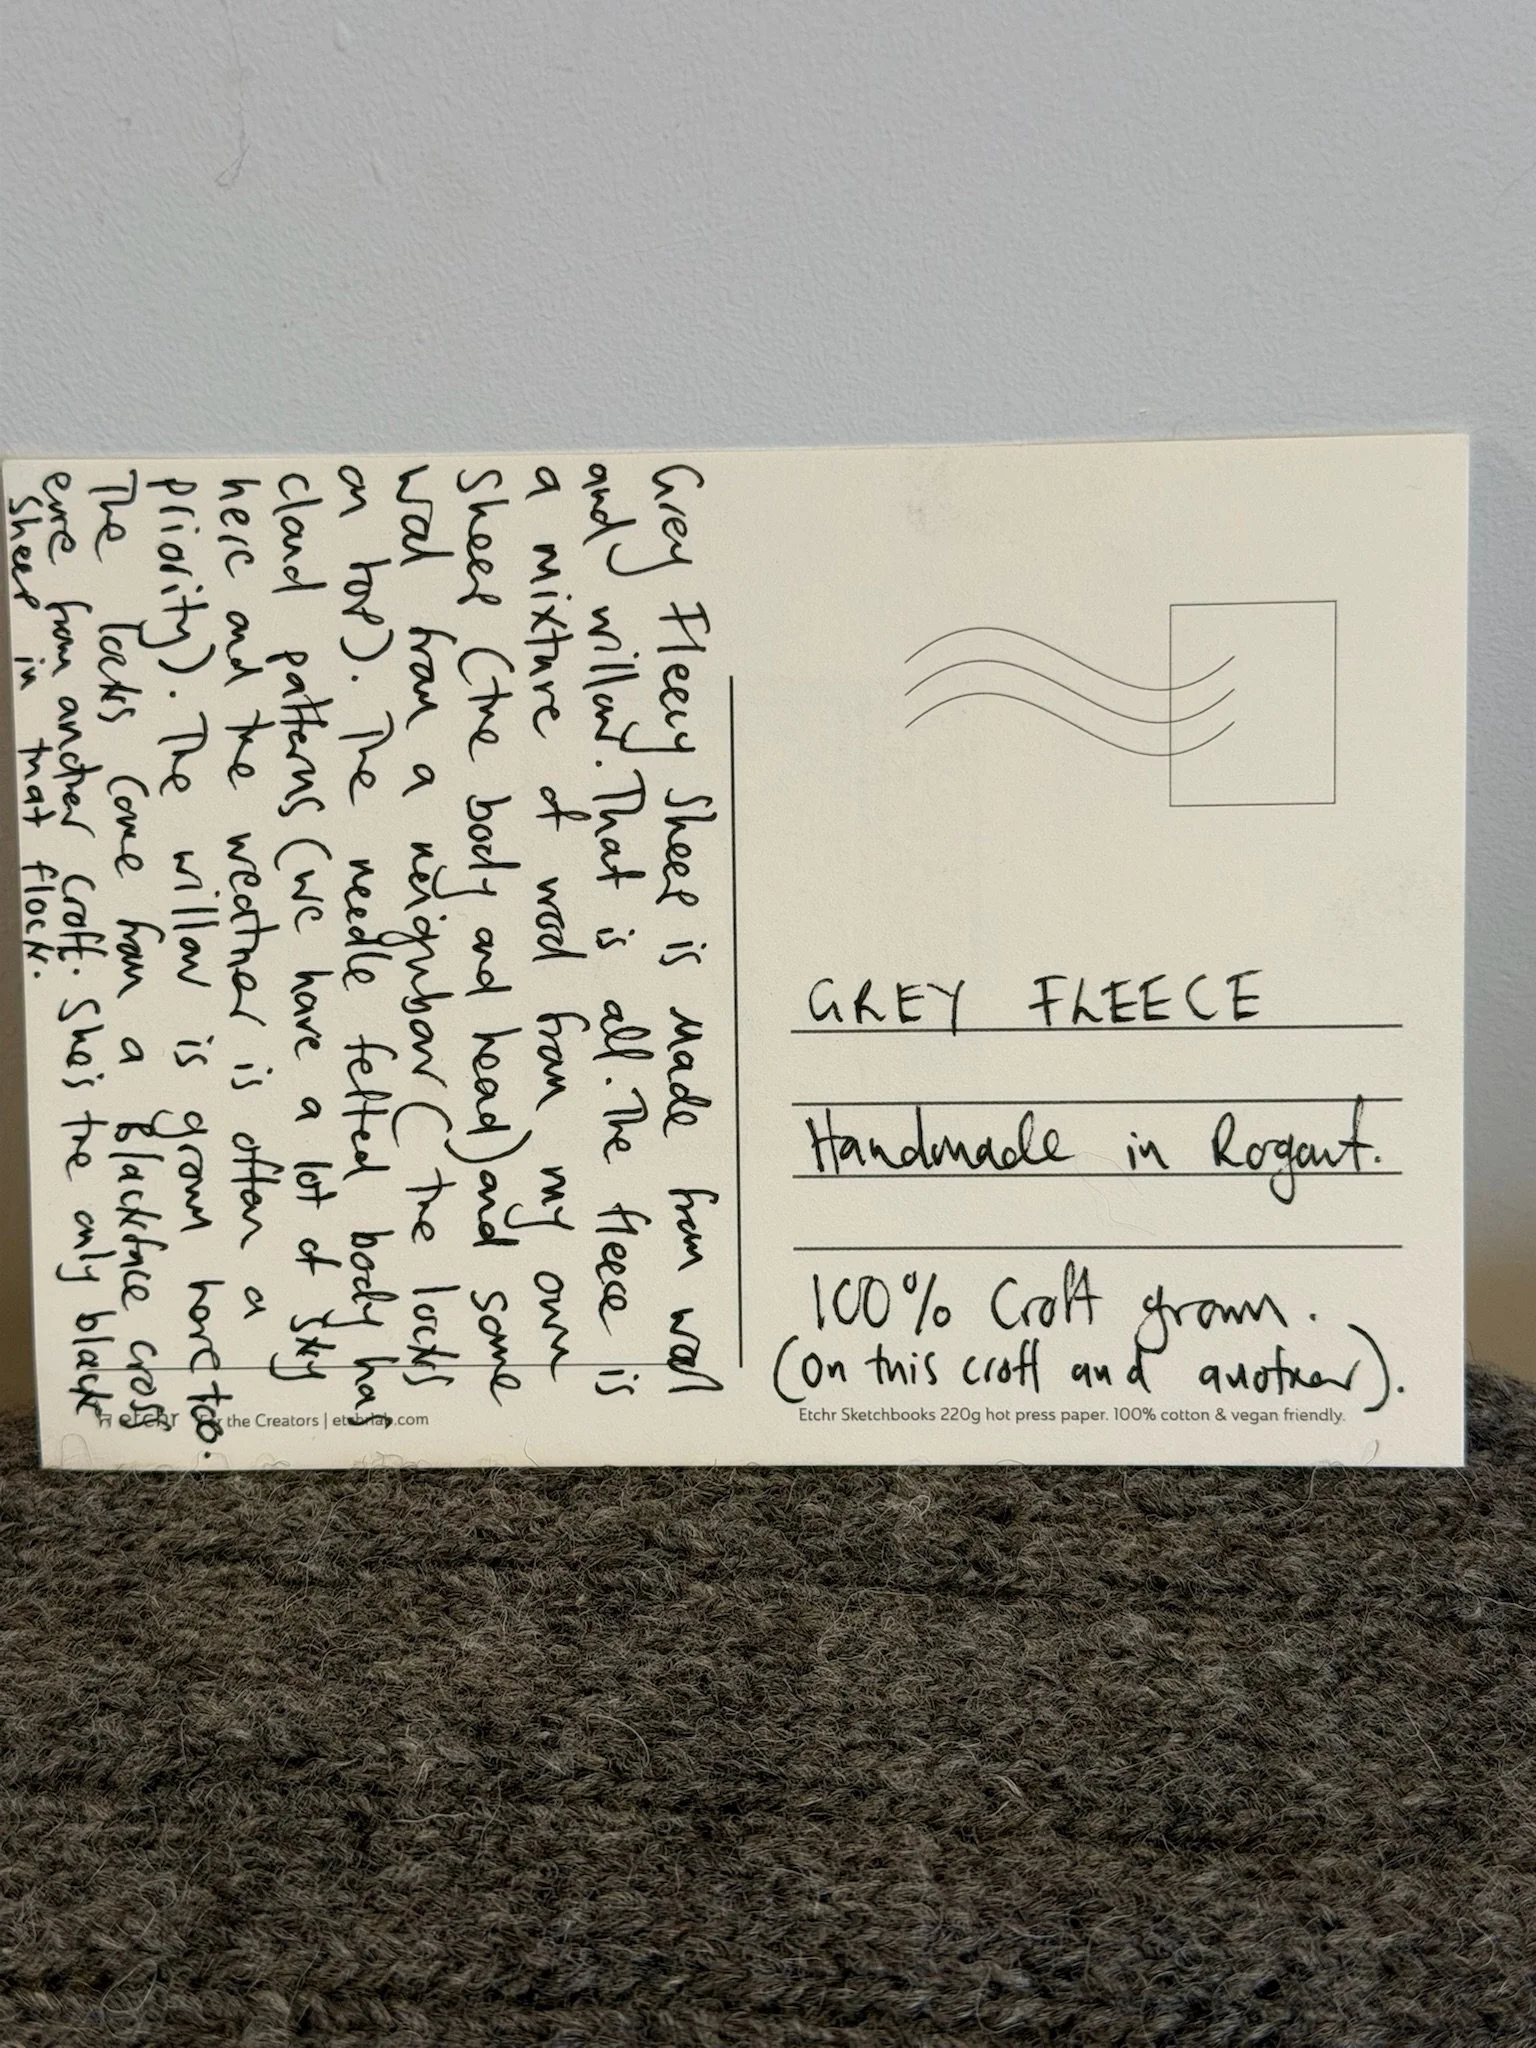 Grey Fleecy Sheep is made from wool
and willow. That is all. The fleece is
a mixture of wool from my own
Sheep (the body and head) and some
wool from a neighbour (the locks
on top). The needle felted body ha,
cloud patterns (we have a lot of sky
here and the weather is often a
priority). The willow is grown here too.
The locks come from a Blackface cross
ewe from another croft. She's the only black
sheep in that flock.
GREY FLEECE
Handmade in Rogart.
100% Croft grown.
(on this croft and another).
etchr For the Creators | etchrlab.com
Etchr Sketchbooks 220g hot press paper. 100% cotton & vegan friendly.